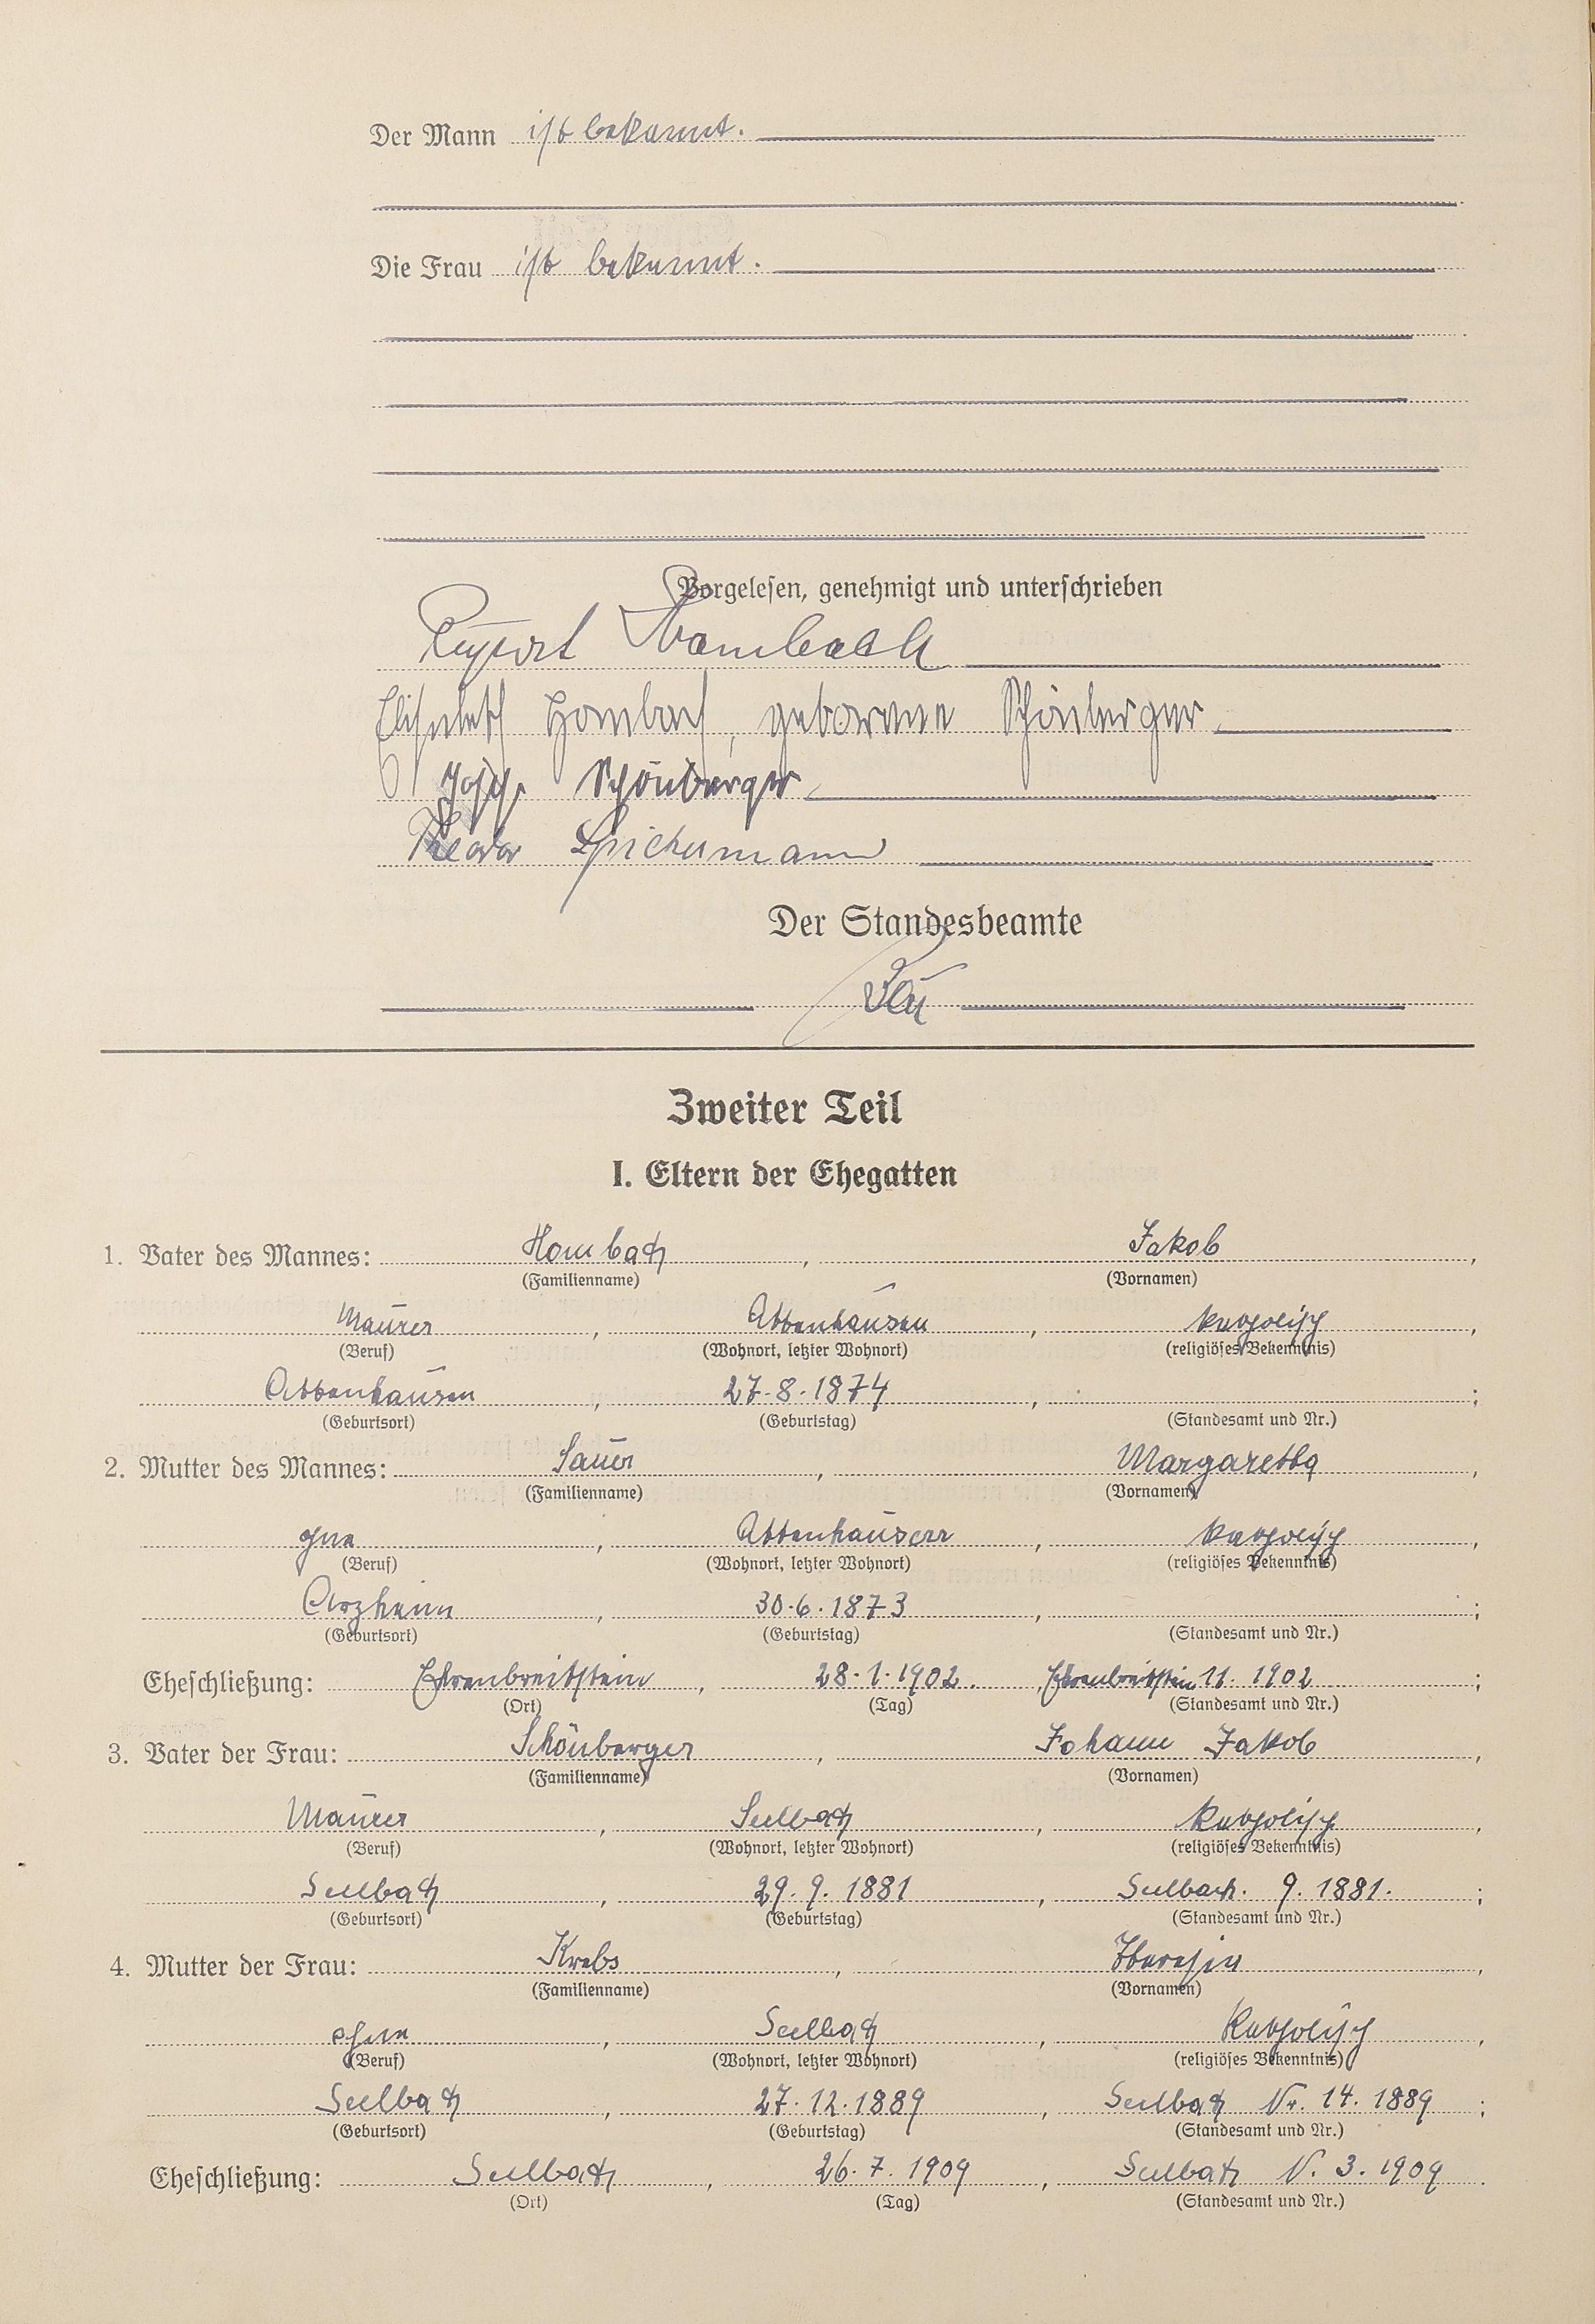 Der Mann ist bekannt.
Die Frau ist bekannt.
Vorgelesen, genehmigt und unterschrieben
Hombach
Elisabeth Hombach, geborene Schönberger.
Josef Schönberger.
Theodor
Der Standesbeamte
Zweiter Teil
I. Eltern der Ehegatten
1. Vater des Mannes: Hombach, Jakob,
(Familienname) (Vornamen)
Maurer, Attenhausen, katholisch,
(Beruf) (Wohnort, letzter Wohnort) (religiöses Bekenntnis)
Attenhausen, 27.8.1874, ;
(Geburtsort) (Geburtstag) (Standesamt und Nr.)
2. Mutter des Mannes: Sauer, Margaretha,
(Familienname) (Vornamen)
ohne, Attenhausen, katholisch,
(Beruf) (Wohnort, letzter Wohnort) (religiöses Bekenntnis)
Arzheim, 30.6.1873, ;
(Geburtsort) (Geburtstag) (Standesamt und Nr.)
Eheschließung: Ehrenbreitstein, 28.1.1902., Ehrenbreitstein 11. 1902;
(Ort) (Tag) (Standesamt und Nr.)
3. Vater der Frau: Schönberger, Johann Jakob,
(Familienname) (Vornamen)
Maurer, Seelbach, katholisch,
(Beruf) (Wohnort, letzter Wohnort) (religiöses Bekenntnis)
Seelbach, 29.9.1881, Seelbach. 9. 1881.;
(Geburtsort) (Geburtstag) (Standesamt und Nr.)
4. Mutter der Frau: Krebs, Theresia,
(Familienname) (Vornamen)
ohne, Seelbach, katholisch,
(Beruf) (Wohnort, letzter Wohnort) (religiöses Bekenntnis)
Seelbach, 27.12.1889, Seelbach Nr. 14. 1889;
(Geburtsort) (Geburtstag) (Standesamt und Nr.)
Eheschließung: Seelbach, 26.7.1909, Seelbach N. 3. 1909.
(Ort) (Tag) (Standesamt und Nr.)